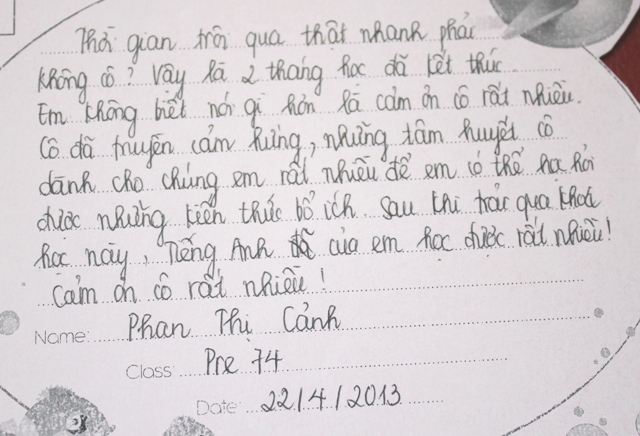 Thời gian trôi qua thật nhanh phải
không cô? Vậy là 2 tháng học đã kết thúc.
Em không biết nói gì hơn là cảm ơn cô rất nhiều.
Cô đã truyền cảm hứng, những tâm huyết cô
dành cho chúng em rất nhiều để em có thể học hỏi
được những kiến thức bổ ích. Sau khi trải qua khoá
học này, Tiếng Anh của em học được rất nhiều!
Cảm ơn cô rất nhiều!
Name: Phan Thị Cảnh
Class: Pre 74
Date: 22/4/2013